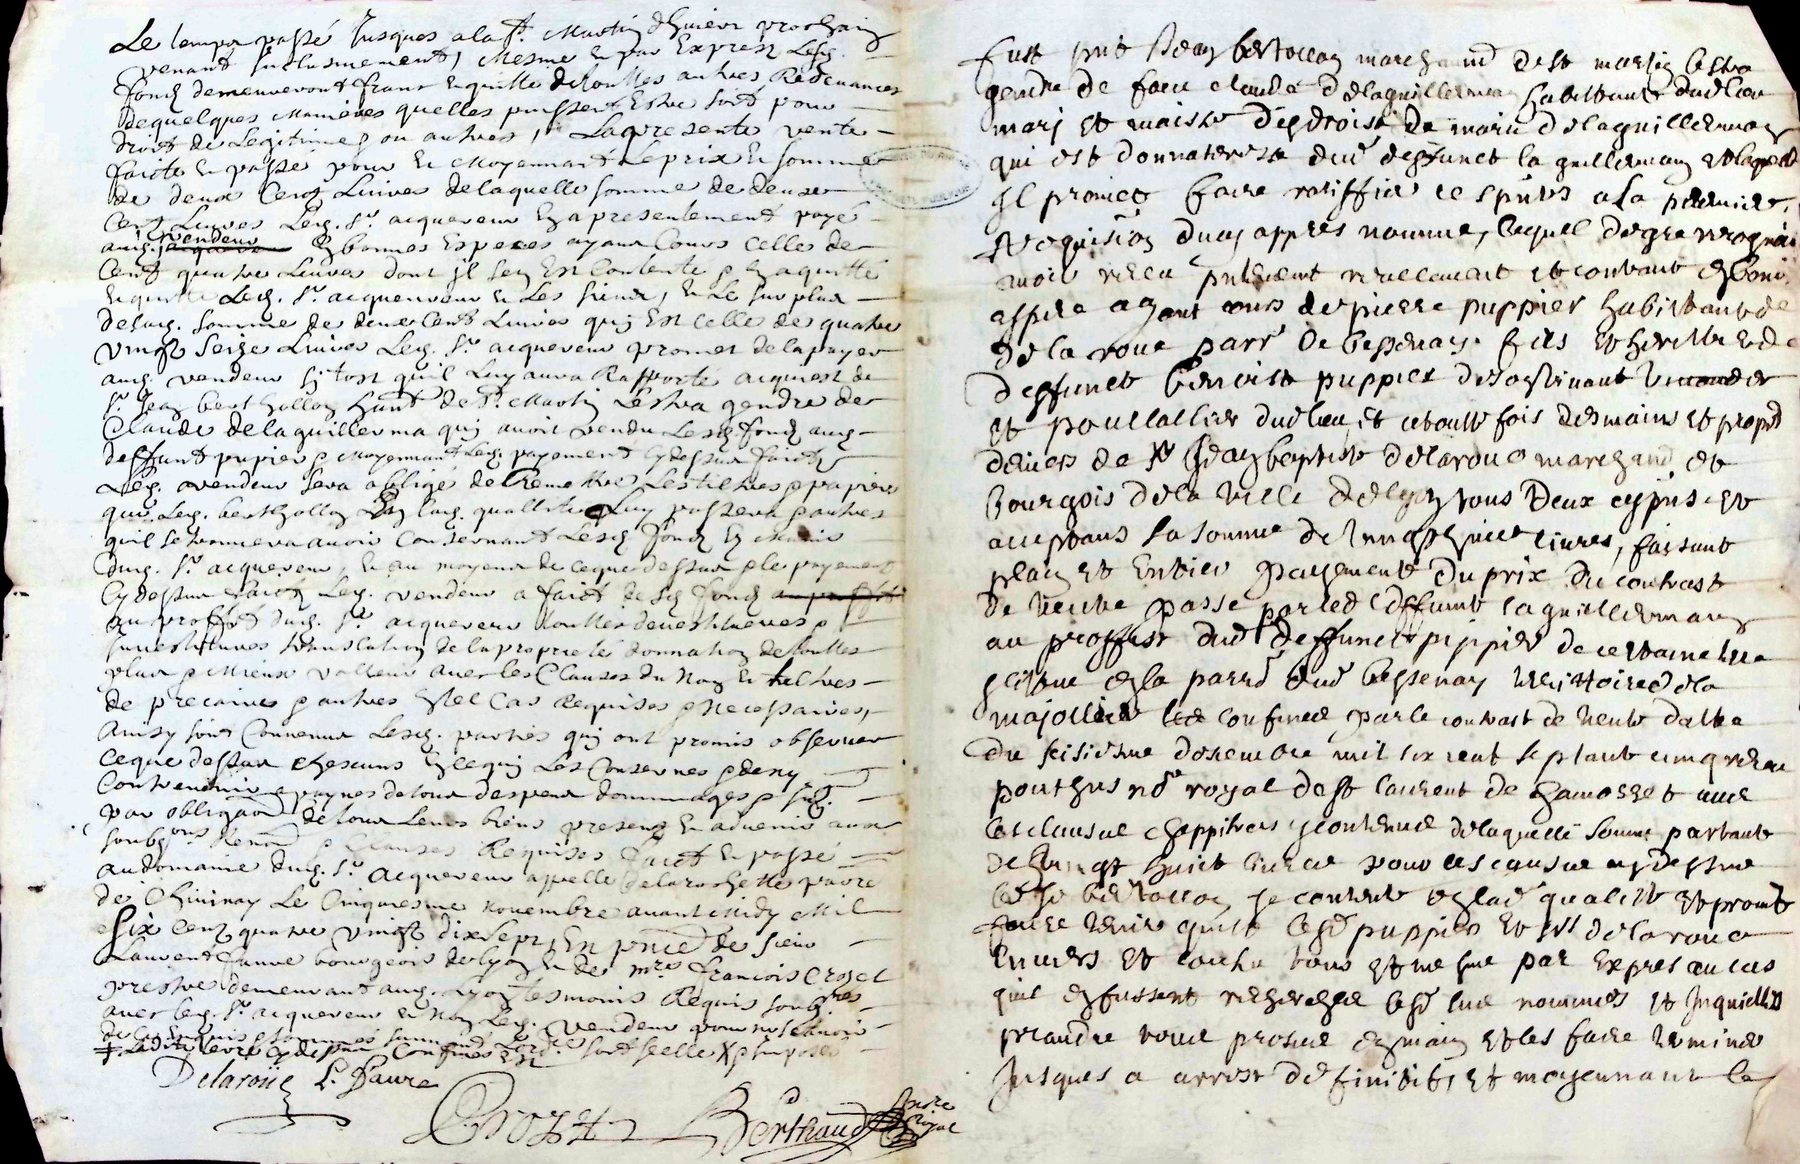 Le temps passé Jusques a la St. Martin d'hiuert prochain
venant Inclusiuement, Mesme et par Exprest Lesd.
fondz demeureront francz Et quitte de touttes autres Redeuances
de quelques Manieres quelles puissent Estre soit pour
droit de Legitimes ou autres, La presente vente
faicte et passé pour et Moyennant Le prix et somme
de deux Centz Liures de laquelle somme de deux
Cent Liures Led. Sr. acquereur En a presentement payé
aud. vendeur En bonnes Especes ayant Cours Celle de
Cent quatre Liures dont il sen Est Contenté et En a quitté
et quitte Led. Sr. acquereur et Les siens, et Le surplus
desd. somme de deux Cent Liures quy Est celle de quatre
vingt seize Liures Led. Sr. acquereur promet de la payer
aud. vendeur sitost quil Luy aura Rapporté acquest de
Sr. Jean berthollon de St. Martin Lestra gendre de
Claude de laguillerma quy auoit vendu Lesd. fondz aud.
deffunt pupier et Moyennant Led. payement Cy dessus faict
Led. vendeur sera obligé de Remettre Les tiltres et papiers
que Led. berthollon En lad. quallité Luy passera et autres
quil se trouuera auoir Consernant Lesd. fondz Es Mains
dud. Sr. acquereur, et au moyens de ceque dessus et le payement
Cy dessus faict Led. vendeur a faict desd. fondz
au proffit dud. Sr. acquereur touttes deuestitures et
Inuestitures translation de la proprieté donnation de touttes
plus et Mieux valleur auec les Clauses du Nom et tiltres
de precaires et autres En tel Cas Requises et Necessaires,
Ainsy sont Conuenus Lesd. parties quy ont promis obseruer
ceque dessus chascuns En ce quy Les Conserne et de ny
Contreuenir a paynes de tous despens dommages et
par obligaon de tous Leurs biens presens et aduenir auec
soubzons Renon et Clauses Requises faict et passé
au domaine dud. Sr. Acquereur appellé de la rochette parre
de Chiuinay Le Cinquiesme Nouembre auant Midy Mil
Six Centz quatre vingtz dix sept, En pnce de sieur
Laurent faure bourgeois de Lyon et de mre francois Crozet
prestre demeurant aud. Lyon tesmoins Requis soubznes
auec led. Sr. acquereur et Non Led. vendeur pour ne sçauoir
de ce Enquis et sommés
Delaroüe L. Faure
Crozet Berthaud Nore Royal
fust pnt Jean bertollon marchand de St martin lestra
gendre de feu claude delaguillerman habittant dud lieu
mary et maistre des droist de marie delaguillerman
qui est donnateresse dud deffunct laguillerman et laquelle
Il promet faire ratiffier ces pntes a la premiere
requision ducy appres nommé, lequel de gre
moit receu pntement reellement et contant en bonne
espece ayant cours de pierre puppier habittant de
de la roue parr de bessenay fils et herittier de
deffunct benoist puppier
et poullallier dud lieu, et ce toutte fois des mains et propre
deniers de Sr Jean baptiste delaroue marchand et
bourgois de la ville de lyon tous deux cy pns et
acceptans la somme de vingt huict liures, faisant
plain et entier payement du prix du contrast
de vente passe par led deffunt laguillerman
au proffist dud deffunct pippier de certaine terre
scittue en la parre dud bessenay territtoire de la
majolliere led confinee par le contrast de vente datte
du seisiesme desembre mil six cent septante cinq receu
ponthus nore royal de St laurent de chamosset auec
les clausue chappitres y contenue de laquelle somme partant
de vingt huict liures pour les causue cy dessue
led Sr bertollon se contente en lad qualité et promt
faire tenir quitt led puppier et Sr delaroue
enuers et contre tous et mesme par expres au cas
quil en fussent recherchee led sue nommés et Inquiettés
prandre toue prosue en main et les faire terminer
Jusques a arrest definitif, et moyennant la